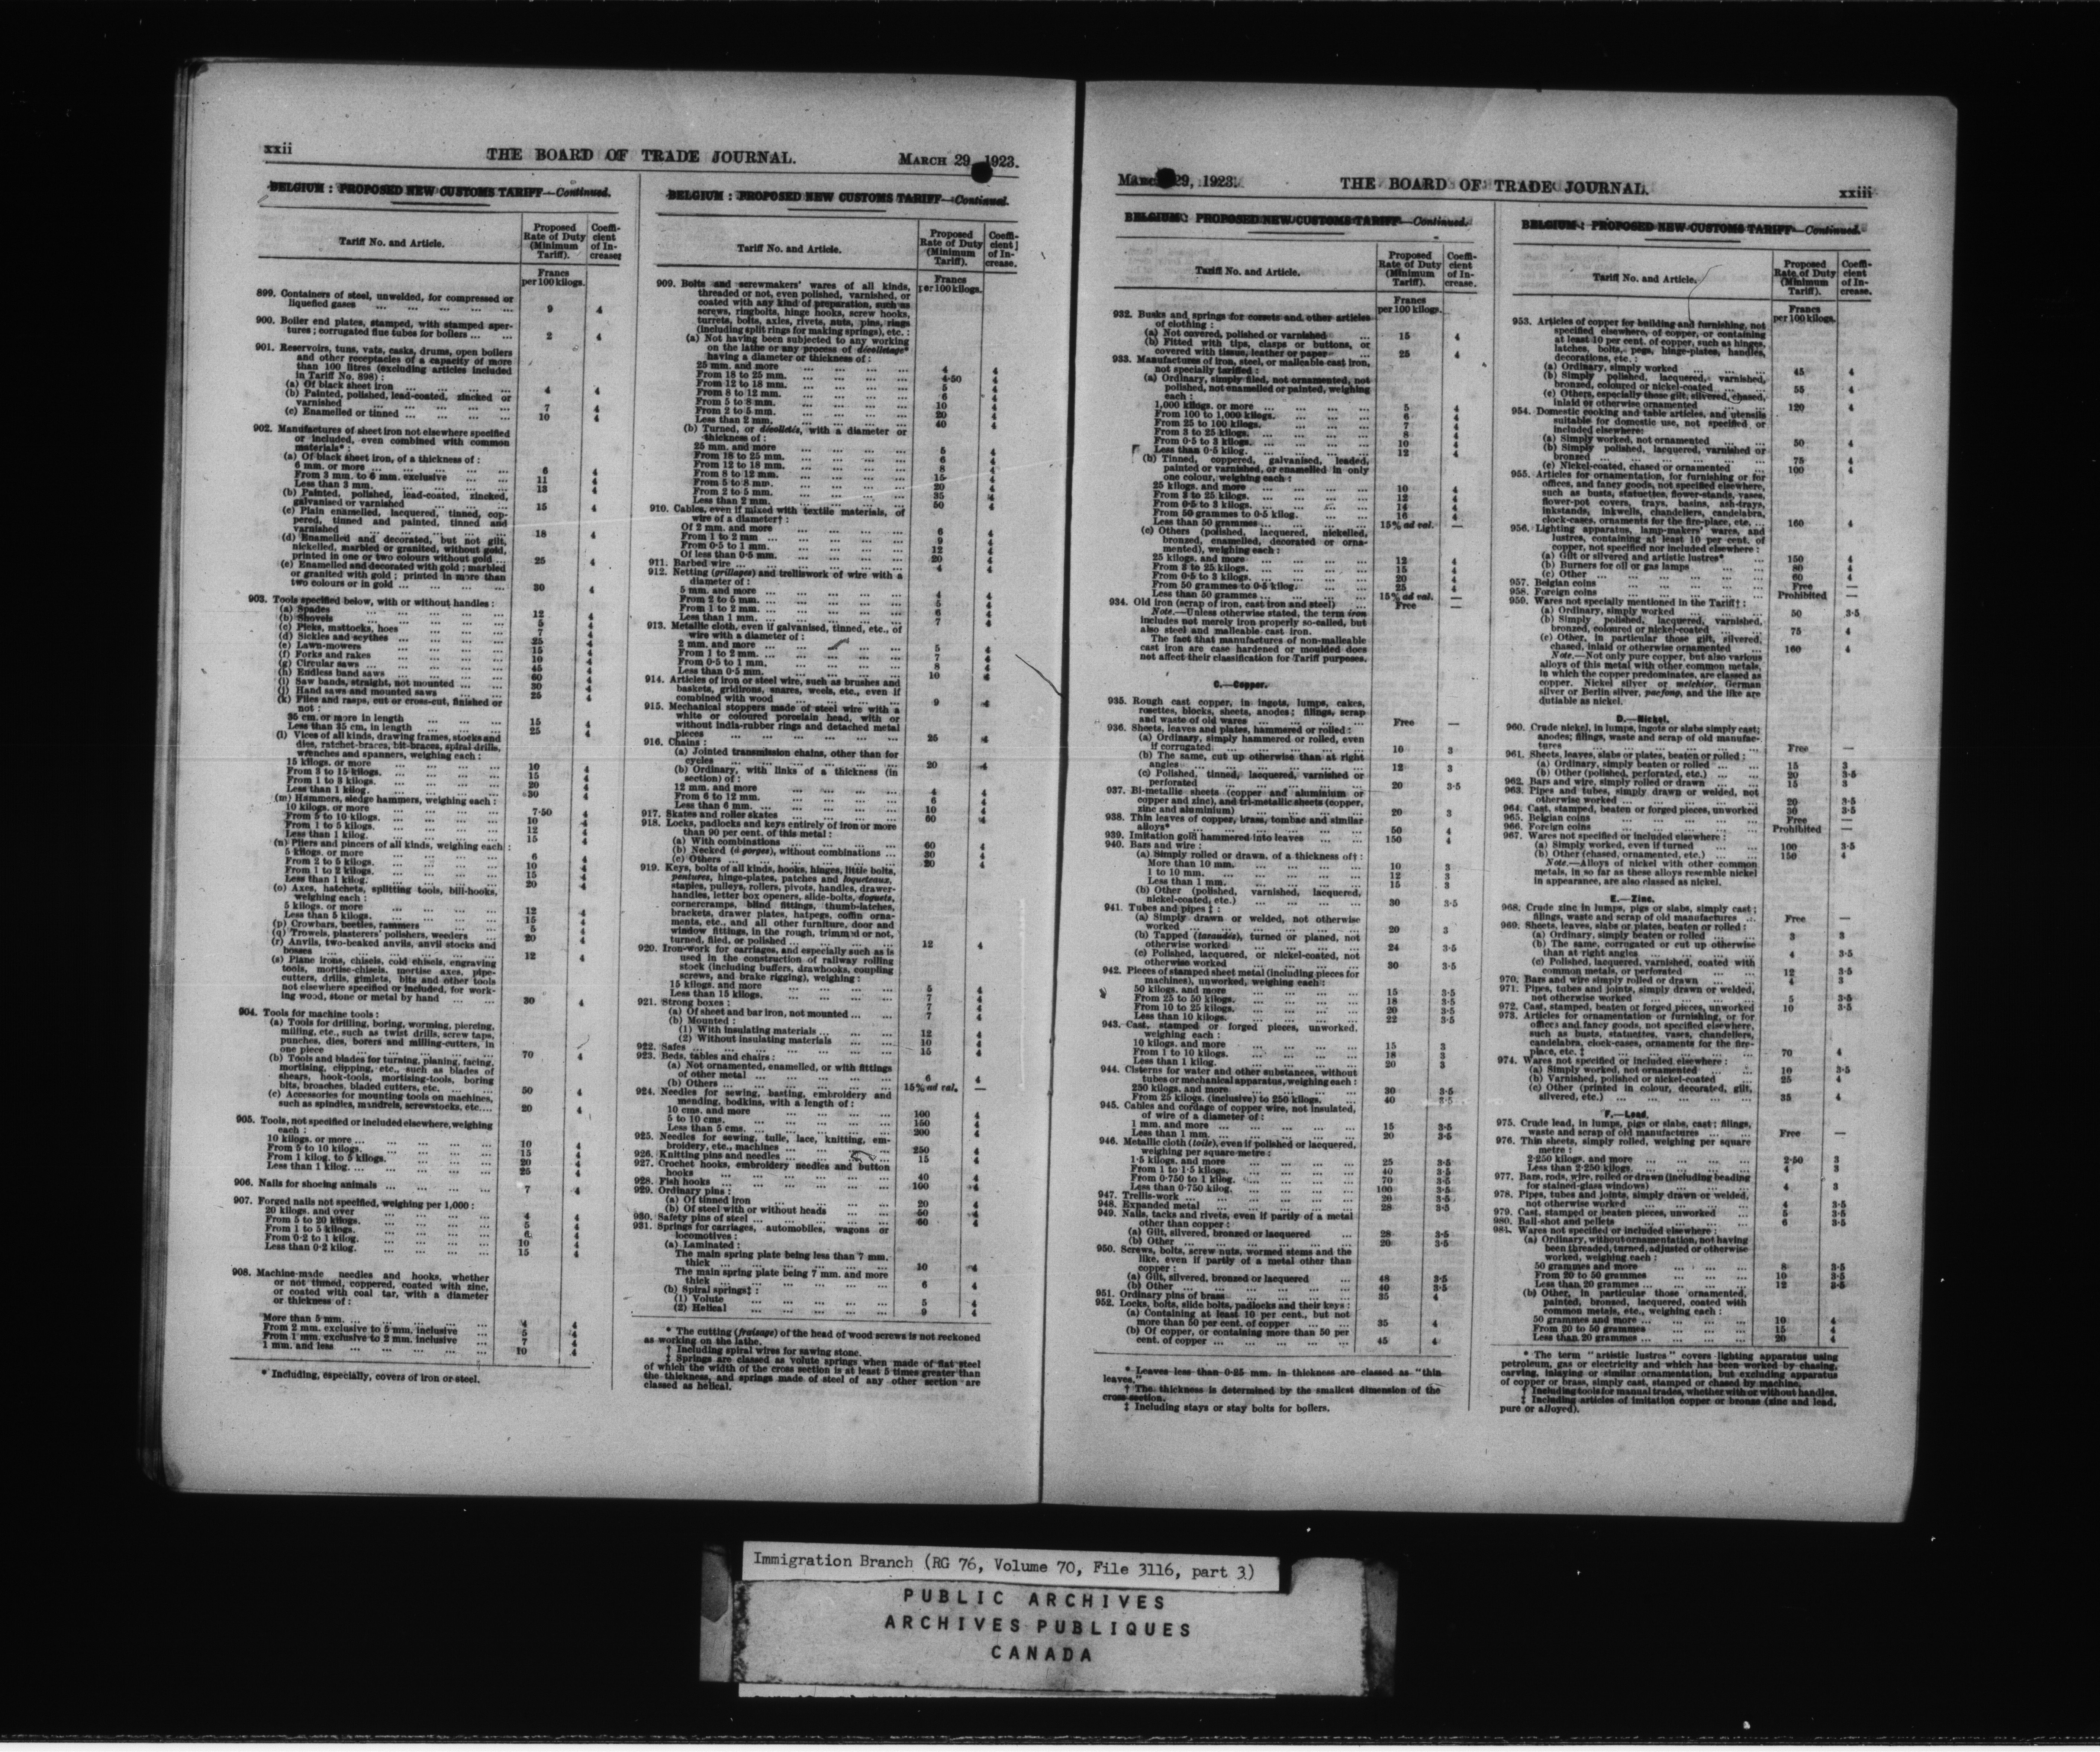 xxii
THE BOARD OF TRADE JOURNAL.
MARCH 29, 1923.
BELGIUM : PROPOSED NEW CUSTOMS TARIFF—Continued.
Tariff No. and Article.
Proposed Rate of Duty (Minimum Tariff).
Coefficient of Increase
Francs per 100 kilogs.
899. Containers of steel, unwelded, for compressed or
liquefied gases ... 9 4
900. Boiler end plates, stamped, with stamped aper-
tures; corrugated flue tubes for boilers ... 2 4
901. Reservoirs, tuns, vats, casks, drums, open boilers
and other receptacles of a capacity of more
than 100 litres (excluding articles included
in Tariff No. 898) :
(a) Of black sheet iron ... 4 4
(b) Painted, polished, lead-coated, zincked or
varnished ... 7 4
(c) Enamelled or tinned ... 10 4
902. Manufactures of sheet iron not elsewhere specified
or included, even combined with common
materials* :
(a) Of black sheet iron, of a thickness of :
6 mm. or more ... 6 4
From 3 mm. to 6 mm. exclusive ... 11 4
Less than 3 mm. ... 13 4
(b) Painted, polished, lead-coated, zincked,
galvanised or varnished ... 15 4
(c) Plain enamelled, lacquered, tinned, cop-
pered, tinned and painted, tinned and
varnished ... 18 4
(d) Enamelled and decorated, but not gilt,
nickelled, marbled or granited, without gold,
printed in one or two colours without gold ... 25 4
(e) Enamelled and decorated with gold ; marbled
or granited with gold ; printed in more than
two colours or in gold ... 30 4
903. Tools specified below, with or without handles :
(a) Spades ... 12 4
(b) Shovels ... 5 4
(c) Picks, mattocks, hoes ... 7 4
(d) Sickles and scythes ... 25 4
(e) Lawn-mowers ... 15 4
(f) Forks and rakes ... 10 4
(g) Circular saws ... 45 4
(h) Endless band saws ... 60 4
(i) Saw bands, straight, not mounted ... 30 4
(j) Hand saws and mounted saws ... 25 4
(k) Files and rasps, cut or cross-cut, finished or
not :
35 cm. or more in length ... 15 4
Less than 35 cm. in length ... 25 4
(l) Vices of all kinds, drawing frames, stocks and
dies, ratchet-braces, bit-braces, spiral drills,
wrenches and spanners, weighing each :
15 kilogs. or more ... 10 4
From 3 to 15 kilogs. ... 15 4
From 1 to 3 kilogs. ... 20 4
Less than 1 kilog. ... 30 4
(m) Hammers, sledge hammers, weighing each :
10 kilogs. or more ... 7·50 4
From 5 to 10 kilogs. ... 10 4
From 1 to 5 kilogs. ... 12 4
Less than 1 kilog. ... 15 4
(n) Pliers and pincers of all kinds, weighing each :
5 kilogs. or more ... 6 4
From 2 to 5 kilogs. ... 10 4
From 1 to 2 kilogs. ... 15 4
Less than 1 kilog. ... 20 4
(o) Axes, hatchets, splitting tools, bill-hooks,
weighing each :
5 kilogs. or more ... 12 4
Less than 5 kilogs. ... 15 4
(p) Crowbars, beetles, rammers ... 5 4
(q) Trowels, plasterers' polishers, weeders ... 20 4
(r) Anvils, two-beaked anvils, anvil stocks and
bosses ... 12 4
(s) Plane irons, chisels, cold chisels, engraving
tools, mortise-chisels, mortise axes, pipe-
cutters, drills, gimlets, bits and other tools
not elsewhere specified or included, for work-
ing wood, stone or metal by hand ... 30 4
904. Tools for machine tools :
(a) Tools for drilling, boring, worming, piercing,
milling, etc., such as twist drills, screw taps,
punches, dies, borers and milling-cutters, in
one piece ... 70 4
(b) Tools and blades for turning, planing, facing,
mortising, clipping, etc., such as blades of
shears, hook-tools, mortising-tools, boring
bits, broaches, bladed cutters, etc. ... 50 4
(c) Accessories for mounting tools on machines,
such as spindles, mandrels, screwstocks, etc. ... 20 4
905. Tools, not specified or included elsewhere, weighing
each :
10 kilogs. or more ... 10 4
From 5 to 10 kilogs. ... 15 4
From 1 kilog. to 5 kilogs. ... 20 4
Less than 1 kilog. ... 25 4
906. Nails for shoeing animals ... 7 4
907. Forged nails not specified, weighing per 1,000 :
20 kilogs. and over ... 4 4
From 5 to 20 kilogs. ... 5 4
From 1 to 5 kilogs. ... 6 4
From 0·2 to 1 kilog. ... 10 4
Less than 0·2 kilog. ... 15 4
908. Machine-made needles and hooks, whether
or not tinned, coppered, coated with zinc,
or coated with coal tar, with a diameter
or thickness of :
More than 5 mm. ... 4 4
From 2 mm. exclusive to 5 mm. inclusive ... 5 4
From 1 mm. exclusive to 2 mm. inclusive ... 7 4
1 mm. and less ... 10 4
* Including, especially, covers of iron or steel.
BELGIUM : PROPOSED NEW CUSTOMS TARIFF—Continued.
Tariff No. and Article.
Proposed Rate of Duty (Minimum Tariff).
Coefficient of Increase.
Francs per 100 kilogs.
909. Bolts and screwmakers' wares of all kinds,
threaded or not, even polished, varnished, or
coated with any kind of preparation, such as
screws, ringbolts, hinge hooks, screw hooks,
turrets, bolts, axles, rivets, nuts, pins, rings
(including split rings for making springs), etc. :
(a) Not having been subjected to any working
on the lathe or any process of décolletage*
having a diameter or thickness of :
25 mm. and more ... 4 4
From 18 to 25 mm. ... 4·50 4
From 12 to 18 mm. ... 5 4
From 8 to 12 mm. ... 6 4
From 5 to 8 mm. ... 10 4
From 2 to 5 mm. ... 20 4
Less than 2 mm. ... 40 4
(b) Turned, or décolletés, with a diameter or
thickness of :
25 mm. and more ... 5 4
From 18 to 25 mm. ... 6 4
From 12 to 18 mm. ... 8 4
From 8 to 12 mm. ... 15 4
From 5 to 8 mm. ... 20 4
From 2 to 5 mm. ... 35 4
Less than 2 mm. ... 50 4
910. Cables, even if mixed with textile materials, of
wire of a diameter† :
Of 2 mm. and more ... 6 4
From 1 to 2 mm. ... 9 4
From 0·5 to 1 mm. ... 12 4
Of less than 0·5 mm. ... 20 4
911. Barbed wire ... 4 4
912. Netting (grillages) and trelliswork of wire with a
diameter of :
5 mm. and more ... 4 4
From 2 to 5 mm. ... 5 4
From 1 to 2 mm. ... 6 4
Less than 1 mm. ... 7 4
913. Metallic cloth, even if galvanised, tinned, etc., of
wire with a diameter of :
2 mm. and more ... 5 4
From 1 to 2 mm. ... 7 4
From 0·5 to 1 mm. ... 8 4
Less than 0·5 mm. ... 10 4
914. Articles of iron or steel wire, such as brushes and
baskets, gridirons, snares, weels, etc., even if
combined with wood ... 9 4
915. Mechanical stoppers made of steel wire with a
white or coloured porcelain head, with or
without india-rubber rings and detached metal
pieces ... 25 4
916. Chains :
(a) Jointed transmission chains, other than for
cycles ... 20 4
(b) Ordinary, with links of a thickness (in
section) of :
12 mm. and more ... 4 4
From 6 to 12 mm. ... 6 4
Less than 6 mm. ... 10 4
917. Skates and roller skates ... 60 4
918. Locks, padlocks and keys entirely of iron or more
than 90 per cent. of this metal :
(a) With combinations ... 60 4
(b) Necked (à gorges), without combinations ... 30 4
(c) Others ... 20 4
919. Keys, bolts of all kinds, hooks, hinges, little bolts,
pentures, hinge-plates, patches and loqueteaux,
staples, pulleys, rollers, pivots, handles, drawer-
handles, letter box openers, slide-bolts, doguets,
cornercramps, blind fittings, thumb-latches,
brackets, drawer plates, hatpegs, coffin orna-
ments, etc., and all other furniture, door and
window fittings, in the rough, trimmed or not,
turned, filed, or polished ... 12 4
920. Iron-work for carriages, and especially such as is
used in the construction of railway rolling
stock (including buffers, drawhooks, coupling
screws, and brake rigging), weighing :
15 kilogs. and more ... 5 4
Less than 15 kilogs. ... 7 4
921. Strong boxes :
(a) Of sheet and bar iron, not mounted ... 7 4
(b) Mounted :
(1) With insulating materials ... 12 4
(2) Without insulating materials ... 10 4
922. Safes ... 15 4
923. Beds, tables and chairs :
(a) Not ornamented, enamelled, or with fittings
of other metal ... 6 4
(b) Others ... 15% ad val. —
924. Needles for sewing, basting, embroidery and
mending, bodkins, with a length of :
10 cms. and more ... 100 4
5 to 10 cms. ... 150 4
Less than 5 cms. ... 200 4
925. Needles for sewing, tulle, lace, knitting, em-
broidery, etc., machines ... 250 4
926. Knitting pins and needles ... 15 4
927. Crochet hooks, embroidery needles and button
hooks ... 40 4
928. Fish hooks ... 100 4
929. Ordinary pins :
(a) Of tinned iron ... 20 4
(b) Of steel with or without heads ... 50 4
930. Safety pins of steel ... 60 4
931. Springs for carriages, automobiles, wagons or
locomotives :
(a) Laminated :
The main spring plate being less than 7 mm.
thick ... 10 4
The main spring plate being 7 mm. and more
thick ... 6 4
(b) Spiral springs‡ :
(1) Volute ... 5 4
(2) Helical ... 9 4
* The cutting (fraisage) of the head of wood screws is not reckoned
as working on the lathe.
† Including spiral wires for sawing stone.
‡ Springs are classed as volute springs when made of flat steel
of which the width of the cross section is at least 5 times greater than
the thickness, and springs made of steel of any other section are
classed as helical.
March 29, 1923.
THE BOARD OF TRADE JOURNAL.
xxiii
BELGIUM : PROPOSED NEW CUSTOMS TARIFF—Continued.
Tariff No. and Article.
Proposed Rate of Duty (Minimum Tariff).
Coefficient of Increase.
Francs per 100 kilogs.
932. Busks and springs for corsets and other articles
of clothing :
(a) Not covered, polished or varnished ... 15 4
(b) Fitted with tips, clasps or buttons, or
covered with tissue, leather or paper ... 25 4
933. Manufactures of iron, steel, or malleable cast iron,
not specially tariffed :
(a) Ordinary, simply filed, not ornamented, not
polished, not enamelled or painted, weighing
each :
1,000 kilogs. or more ... 5 4
From 100 to 1,000 kilogs. ... 6 4
From 25 to 100 kilogs. ... 7 4
From 3 to 25 kilogs. ... 8 4
From 0·5 to 3 kilogs. ... 10 4
Less than 0·5 kilog. ... 12 4
(b) Tinned, coppered, galvanised, leaded,
painted or varnished, or enamelled in only
one colour, weighing each :
25 kilogs. and more ... 10 4
From 3 to 25 kilogs. ... 12 4
From 0·5 to 3 kilogs. ... 14 4
From 50 grammes to 0·5 kilog. ... 16 4
Less than 50 grammes ... 15% ad val. —
(c) Others (polished, lacquered, nickelled,
bronzed, enamelled, decorated or orna-
mented), weighing each :
25 kilogs. and more ... 12 4
From 3 to 25 kilogs. ... 15 4
From 0·5 to 3 kilogs. ... 20 4
From 50 grammes to 0·5 kilog. ... 25 4
Less than 50 grammes ... 15% ad val. —
934. Old iron (scrap of iron, cast iron and steel) ... Free —
Note.—Unless otherwise stated, the term iron
includes not merely iron properly so-called, but
also steel and malleable cast iron.
The fact that manufactures of non-malleable
cast iron are case hardened or moulded does
not affect their classification for Tariff purposes.
C.—Copper.
935. Rough cast copper, in ingots, lumps, cakes,
rosettes, blocks, sheets, anodes; filings, scrap
and waste of old wares ... Free —
936. Sheets, leaves and plates, hammered or rolled :
(a) Ordinary, simply hammered or rolled, even
if corrugated ... 10 3
(b) The same, cut up otherwise than at right
angles ... 12 3
(c) Polished, tinned, lacquered, varnished or
perforated ... 20 3·5
937. Bi-metallic sheets (copper and aluminium or
copper and zinc), and tri-metallic sheets (copper,
zinc and aluminium) ... 20 3
938. Thin leaves of copper, brass, tombac and similar
alloys* ... 50 4
939. Imitation gold hammered into leaves ... 150 4
940. Bars and wire :
(a) Simply rolled or drawn, of a thickness of† :
More than 10 mm. ... 10 3
1 to 10 mm. ... 12 3
Less than 1 mm. ... 15 3
(b) Other (polished, varnished, lacquered,
nickel-coated, etc.) ... 30 3·5
941. Tubes and pipes‡ :
(a) Simply drawn or welded, not otherwise
worked ... 20 3
(b) Tapped (taraudés), turned or planed, not
otherwise worked ... 24 3·5
(c) Polished, lacquered, or nickel-coated, not
otherwise worked ... 30 3·5
942. Pieces of stamped sheet metal (including pieces for
machines), unworked, weighing each :
50 kilogs. and more ... 15 3·5
From 25 to 50 kilogs. ... 18 3·5
From 10 to 25 kilogs. ... 20 3·5
Less than 10 kilogs. ... 22 3·5
943. Cast, stamped or forged pieces, unworked,
weighing each :
10 kilogs. and more ... 15 3
From 1 to 10 kilogs. ... 18 3
Less than 1 kilog. ... 20 3
944. Cisterns for water and other substances, without
tubes or mechanical apparatus, weighing each :
250 kilogs. and more ... 30 3·5
From 25 kilogs. (inclusive) to 250 kilogs. ... 40 3·5
945. Cables and cordage of copper wire, not insulated,
of wire of a diameter of :
1 mm. and more ... 15 3·5
Less than 1 mm. ... 20 3·5
946. Metallic cloth (toile), even if polished or lacquered,
weighing per square metre :
1·5 kilogs. and more ... 25 3·5
From 1 to 1·5 kilogs. ... 40 3·5
From 0·750 to 1 kilog. ... 70 3·5
Less than 0·750 kilog. ... 100 3·5
947. Trellis-work ... 20 3·5
948. Expanded metal ... 28 3·5
949. Nails, tacks and rivets, even if partly of a metal
other than copper :
(a) Gilt, silvered, bronzed or lacquered ... 28 3·5
(b) Other ... 20 3·5
950. Screws, bolts, screw nuts, wormed stems and the
like, even if partly of a metal other than
copper :
(a) Gilt, silvered, bronzed or lacquered ... 48 3·5
(b) Other ... 40 3·5
951. Ordinary pins of brass ... 35 4
952. Locks, bolts, slide bolts, padlocks and their keys :
(a) Containing at least 10 per cent., but not
more than 50 per cent. of copper ... 35 4
(b) Of copper, or containing more than 50 per
cent. of copper ... 45 4
* Leaves less than 0·25 mm. in thickness are classed as "thin
leaves."
† The thickness is determined by the smallest dimension of the
cross section.
‡ Including stays or stay bolts for boilers.
BELGIUM : PROPOSED NEW CUSTOMS TARIFF—Continued.
Tariff No. and Article.
Proposed Rate of Duty (Minimum Tariff).
Coefficient of Increase.
Francs per 100 kilogs.
953. Articles of copper for building and furnishing, not
specified elsewhere, of copper, or containing
at least 10 per cent. of copper, such as hinges,
latches, bolts, pegs, hinge-plates, handles,
decorations, etc. :
(a) Ordinary, simply worked ... 45 4
(b) Simply polished, lacquered, varnished,
bronzed, coloured or nickel-coated ... 55 4
(c) Others, especially those gilt, silvered, chased,
inlaid or otherwise ornamented ... 120 4
954. Domestic cooking and table articles, and utensils
suitable for domestic use, not specified or
included elsewhere:
(a) Simply worked, not ornamented ... 50 4
(b) Simply polished, lacquered, varnished or
bronzed ... 75 4
(c) Nickel-coated, chased or ornamented ... 100 4
955. Articles for ornamentation, for furnishing or for
offices, and fancy goods, not specified elsewhere,
such as busts, statuettes, flower-stands, vases,
flower-pot covers, trays, basins, ash-trays,
inkstands, inkwells, chandeliers, candelabra,
clock-cases, ornaments for the fire-place, etc. ... 160 4
956. Lighting apparatus, lamp-makers' wares, and
lustres, containing at least 10 per cent. of
copper, not specified nor included elsewhere :
(a) Gilt or silvered and artistic lustres* ... 150 4
(b) Burners for oil or gas lamps ... 80 4
(c) Other ... 60 4
957. Belgian coins ... Free —
958. Foreign coins ... Prohibited —
959. Wares not specially mentioned in the Tariff† :
(a) Ordinary, simply worked ... 50 3·5
(b) Simply polished, lacquered, varnished,
bronzed, coloured or nickel-coated ... 75 4
(c) Other, in particular those gilt, silvered,
chased, inlaid or otherwise ornamented ... 160 4
Note.—Not only pure copper, but also various
alloys of this metal with other common metals,
in which the copper predominates, are classed as
copper. Nickel silver or melchior, German
silver or Berlin silver, pacfong, and the like are
dutiable as nickel.
D.—Nickel.
960. Crude nickel, in lumps, ingots or slabs simply cast;
anodes; filings, waste and scrap of old manufac-
tures ... Free —
961. Sheets, leaves, slabs or plates, beaten or rolled :
(a) Ordinary, simply beaten or rolled ... 15 3
(b) Other (polished, perforated, etc.) ... 20 3·5
962. Bars and wire, simply rolled or drawn ... 15 3
963. Pipes and tubes, simply drawn or welded, not
otherwise worked ... 20 3·5
964. Cast, stamped, beaten or forged pieces, unworked ... 30 3·5
965. Belgian coins ... Free —
966. Foreign coins ... Prohibited —
967. Wares not specified or included elsewhere :
(a) Simply worked, even if turned ... 100 3·5
(b) Other (chased, ornamented, etc.) ... 150 4
Note.—Alloys of nickel with other common
metals, in so far as these alloys resemble nickel
in appearance, are also classed as nickel.
E.—Zinc.
968. Crude zinc, in lumps, pigs or slabs, simply cast ;
filings, waste and scrap of old manufactures ... Free —
969. Sheets, leaves, slabs or plates, beaten or rolled :
(a) Ordinary, simply beaten or rolled ... 3 3
(b) The same, corrugated or cut up otherwise
than at right angles ... 4 3·5
(c) Polished, lacquered, varnished, coated with
common metals, or perforated ... 12 3·5
970. Bars and wire simply rolled or drawn ... 4 3
971. Pipes, tubes and joints, simply drawn or welded,
not otherwise worked ... 5 3·5
972. Cast, stamped, beaten or forged pieces, unworked ... 10 3·5
973. Articles for ornamentation or furnishing, or for
offices and fancy goods, not specified elsewhere,
such as busts, statuettes, vases, chandeliers,
candelabra, clock-cases, ornaments for the fire-
place, etc. ‡ ... 70 4
974. Wares not specified or included elsewhere :
(a) Simply worked, not ornamented ... 10 3·5
(b) Varnished, polished or nickel-coated ... 25 4
(c) Other (printed in colour, decorated, gilt,
silvered, etc.) ... 35 4
F.—Lead.
975. Crude lead, in lumps, pigs or slabs, cast ; filings,
waste and scrap of old manufactures ... Free —
976. Thin sheets, simply rolled, weighing per square
metre :
2·250 kilogs. and more ... 2·50 3
Less than 2·250 kilogs. ... 4 3
977. Bars, rods, wire, rolled or drawn (including beading
for stained-glass windows) ... 4 3
978. Pipes, tubes and joints, simply drawn or welded,
not otherwise worked ... 4 3·5
979. Cast, stamped or beaten pieces, unworked ... 5 3·5
980. Ball-shot and pellets ... 6 3·5
981. Wares not specified or included elsewhere :
(a) Ordinary, without ornamentation, not having
been threaded, turned, adjusted or otherwise
worked, weighing each :
50 grammes and more ... 8 3·5
From 20 to 50 grammes ... 10 3·5
Less than 20 grammes ... 12 3·5
(b) Other, in particular those ornamented,
painted, bronzed, lacquered, coated with
common metals, etc., weighing each :
50 grammes and more ... 10 4
From 20 to 50 grammes ... 15 4
Less than 20 grammes ... 20 4
* The term "artistic lustres" covers lighting apparatus using
petroleum, gas or electricity and which has been worked by chasing,
carving, inlaying or similar ornamentation, but excluding apparatus
of copper or brass, simply cast, stamped or chased by machine.
† Including tools for manual trades, whether with or without handles.
‡ Including articles of imitation copper or bronze (zinc and lead,
pure or alloyed).
Immigration Branch (RG 76, Volume 70, File 3116, part 3)
PUBLIC ARCHIVES
ARCHIVES PUBLIQUES
CANADA